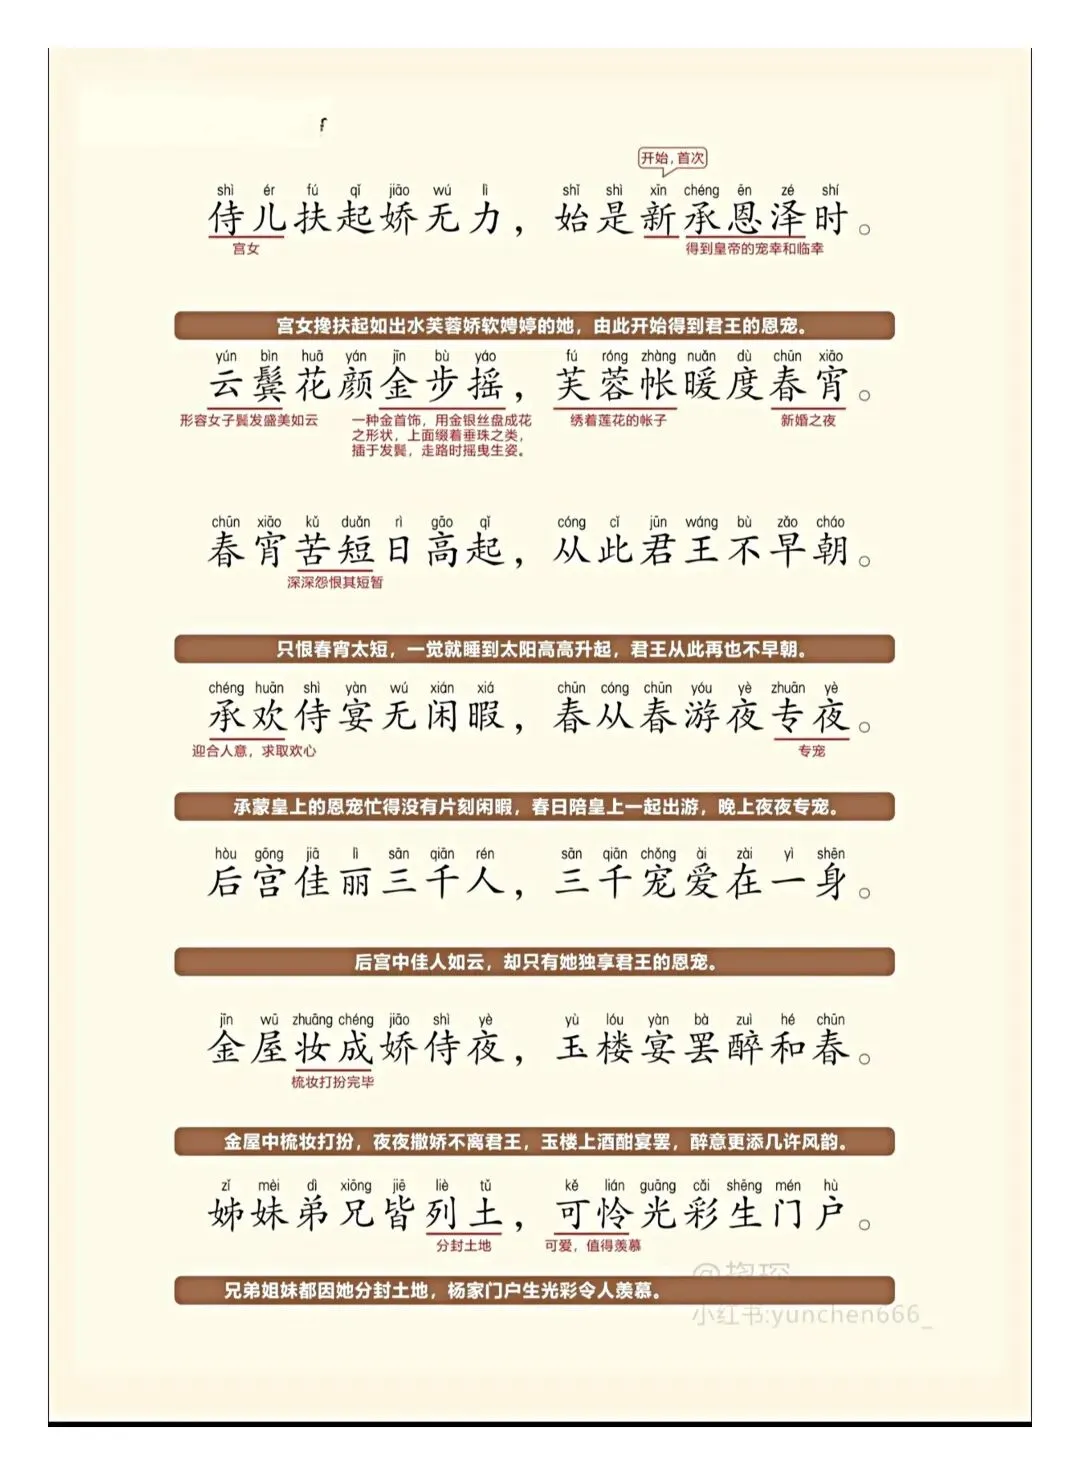 开始，首次
shì ér fú qǐ jiāo wú lì shǐ shì xīn chéng ēn zé shí
侍儿扶起娇无力，始是新承恩泽时。
宫女 得到皇帝的宠幸和临幸
宫女搀扶起如出水芙蓉娇软娉婷的她，由此开始得到君王的恩宠。
yún bìn huā yán jīn bù yáo fú róng zhàng nuǎn dù chūn xiāo
云鬓花颜金步摇，芙蓉帐暖度春宵。
形容女子鬓发盛美如云 一种金首饰，用金银丝盘成花 绣着莲花的帐子 新婚之夜
之形状，上面缀着垂珠之类，
插于发鬓，走路时摇曳生姿。
chūn xiāo kǔ duǎn rì gāo qǐ cóng cǐ jūn wáng bù zǎo cháo
春宵苦短日高起，从此君王不早朝。
深深怨恨其短暂
只恨春宵太短，一觉就睡到太阳高高升起，君王从此再也不早朝。
chéng huān shì yàn wú xián xiá chūn cóng chūn yóu yè zhuān yè
承欢侍宴无闲暇，春从春游夜专夜。
迎合人意，求取欢心 专宠
承蒙皇上的恩宠忙得没有片刻闲暇，春日陪皇上一起出游，晚上夜夜专宠。
hòu gōng jiā lì sān qiān rén sān qiān chǒng ài zài yì shēn
后宫佳丽三千人，三千宠爱在一身。
后宫中佳人如云，却只有她独享君王的恩宠。
jīn wū zhuāng chéng jiāo shì yè yù lóu yàn bà zuì hé chūn
金屋妆成娇侍夜，玉楼宴罢醉和春。
梳妆打扮完毕
金屋中梳妆打扮，夜夜撒娇不离君王，玉楼上酒酣宴罢，醉意更添几许风韵。
zǐ mèi dì xiōng jiē liè tǔ kě lián guāng cǎi shēng mén hù
姊妹弟兄皆列土，可怜光彩生门户。
分封土地 可爱，值得羡慕
兄弟姐妹都因她分封土地，杨家门户生光彩令人羡慕。
小红书:yunchen666_